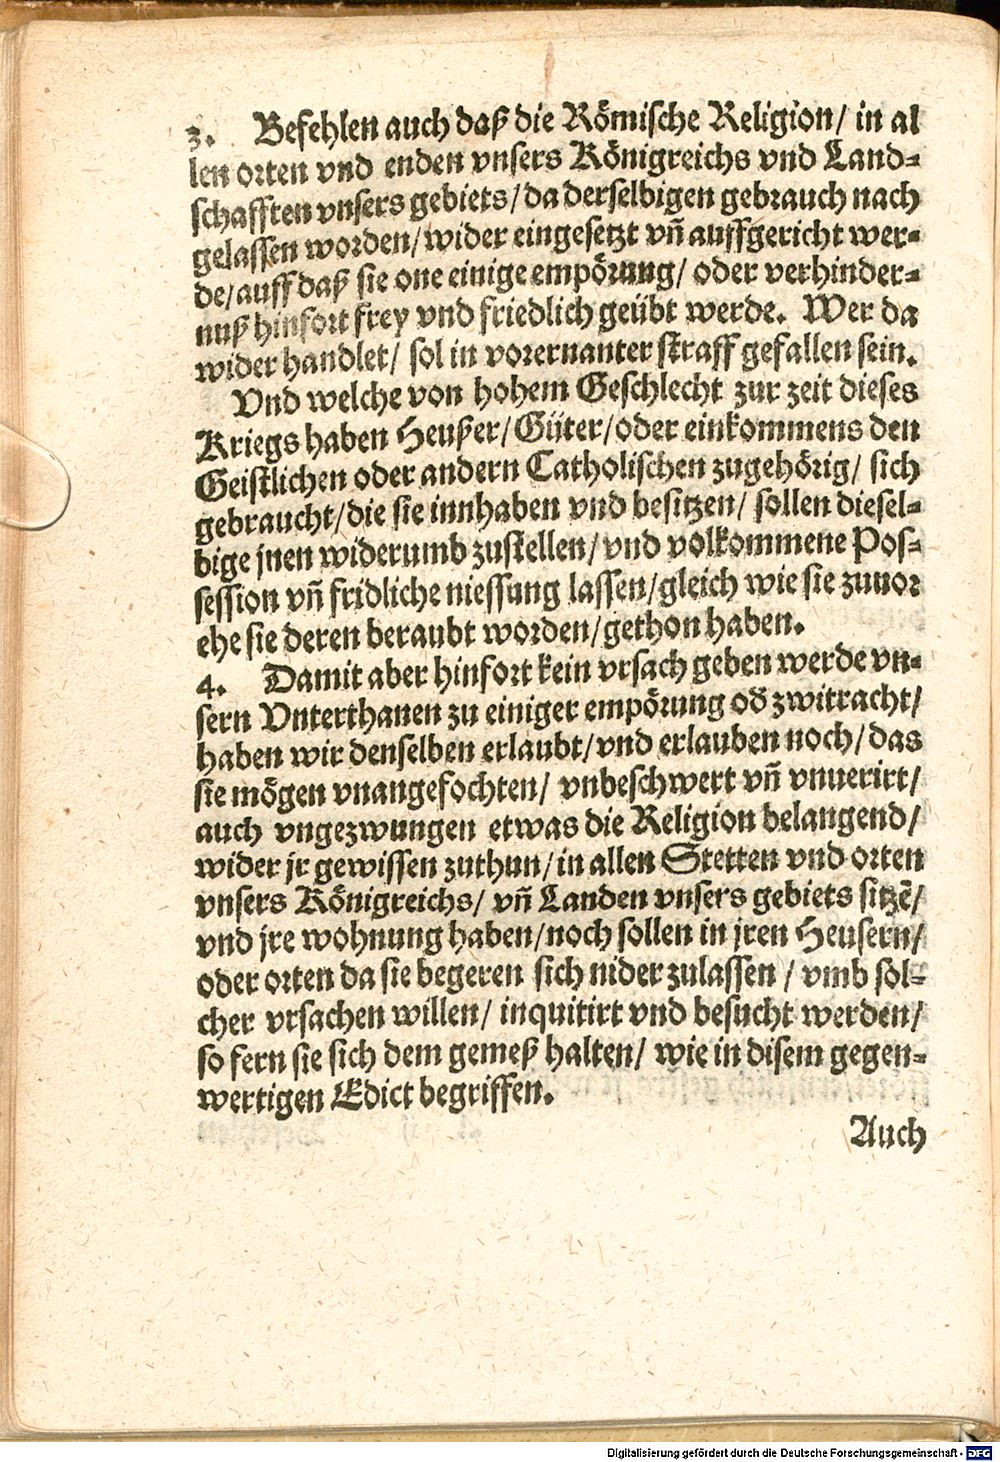 3. Befehlen auch daß die Römische Religion/ in al
len orten vnd enden vnsers Königreichs vnd Land⸗
schafften vnsers gebiets/ da derselbigen gebrauch nach
gelassen worden/ wider eingesetzt vñ auffgericht wer⸗
de/ auff daß sie one einige empörung/ oder verhinder⸗
nuß hinfort frey vnd friedlich geübt werde. Wer da
wider handlet/ sol in vorernanter straff gefallen sein.
Vnd welche von hohem Geschlecht zur zeit dieses
Kriegs haben Heußer/ Güter/ oder einkommens den
Geistlichen oder andern Catholischen zugehörig/ sich
gebraucht/ die sie innhaben vnd besitzen/ sollen diesel⸗
bige jnen widerumb zustellen/ vnd volkommene Pos⸗
session vñ fridliche niessung lassen/ gleich wie sie zuuor
ehe sie deren beraubt worden/ gethon haben.
4. Damit aber hinfort kein vrsach geben werde vn⸗
sern Vnterthanen zu einiger empörung od zwitracht/
haben wir denselben erlaubt/ vnd erlauben noch/ das
sie mögen vnangefochten/ vnbeschwert vñ vnuerirt/
auch vngezwungen etwas die Religion belangend/
wider jr gewissen zuthun/ in allen Stetten vnd orten
vnsers Königreichs/ vñ Landen vnsers gebiets sitzẽ/
vnd jre wohnung haben/ noch sollen in jren Heusern/
oder orten da sie begeren sich nider zulassen / vmb sol⸗
cher vrsachen willen/ inquitirt vnd besucht werden/
so fern sie sich dem gemeß halten/ wie in disem gegen⸗
wertigen Edict begriffen.
Auch
Digitalisierung gefördert durch die Deutsche Forschungsgemeinschaft - DFG